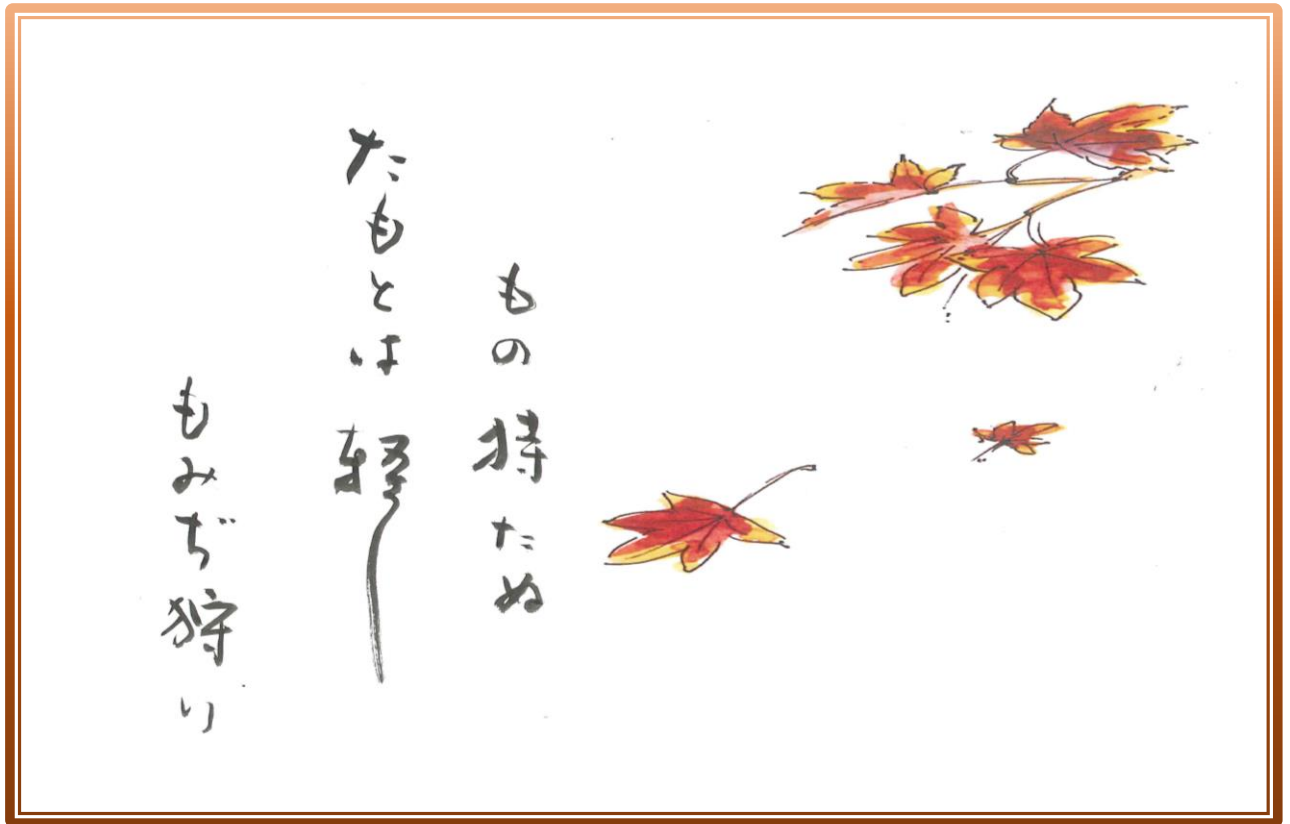 もの持たぬ
たもとは軽し
もみぢ狩り